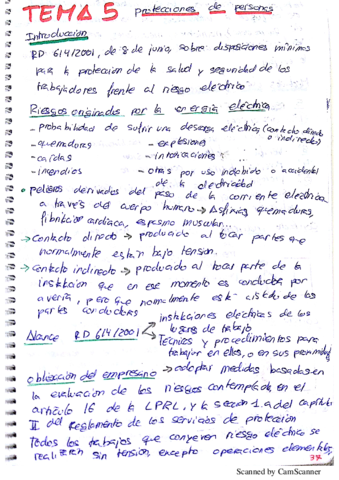 TEMA 5 protecciones de personas
Introducción
RD 614/2001, de 8 de junio, sobre disposiciones mínimas
para la protección de la salud y seguridad de los
trabajadores frente al riesgo eléctrico
Riesgos originados por la energía eléctrica
- probabilidad de sufrir una descarga eléctrica (contacto directo o indirecto)
- quemaduras - explosiones
- caídas - intoxicaciones
- incendios - otras por uso indebido o accidental de la electricidad
• peligros derivados del paso de la corriente eléctrica
a través del cuerpo humano → Asfixias, quemaduras,
fibrilación cardíaca, espasmo muscular...
→ Contacto directo → producido al tocar partes que
normalmente están bajo tensión.
→ contacto indirecto → producido al tocar parte de la
instalación que en ese momento es conductora por
avería, pero que normalmente está aislada de las
partes conductoras
Alcance RD 614/2001 → instalaciones eléctricas de los
lugares de trabajo
→ Técnicas y procedimientos para
trabajar en ellas, o en sus proximidad
obligación del empresario → adoptar medidas basadas en
la evaluación de los riesgos contemplada en el
artículo 16 de la LPRL, y la sección 1.a del capítulo
II del Reglamento de los servicios de protección
Todos los trabajos que conlleven riesgo eléctrico se
realizarán sin tensión, excepto operaciones elementales,
Scanned by CamScanner